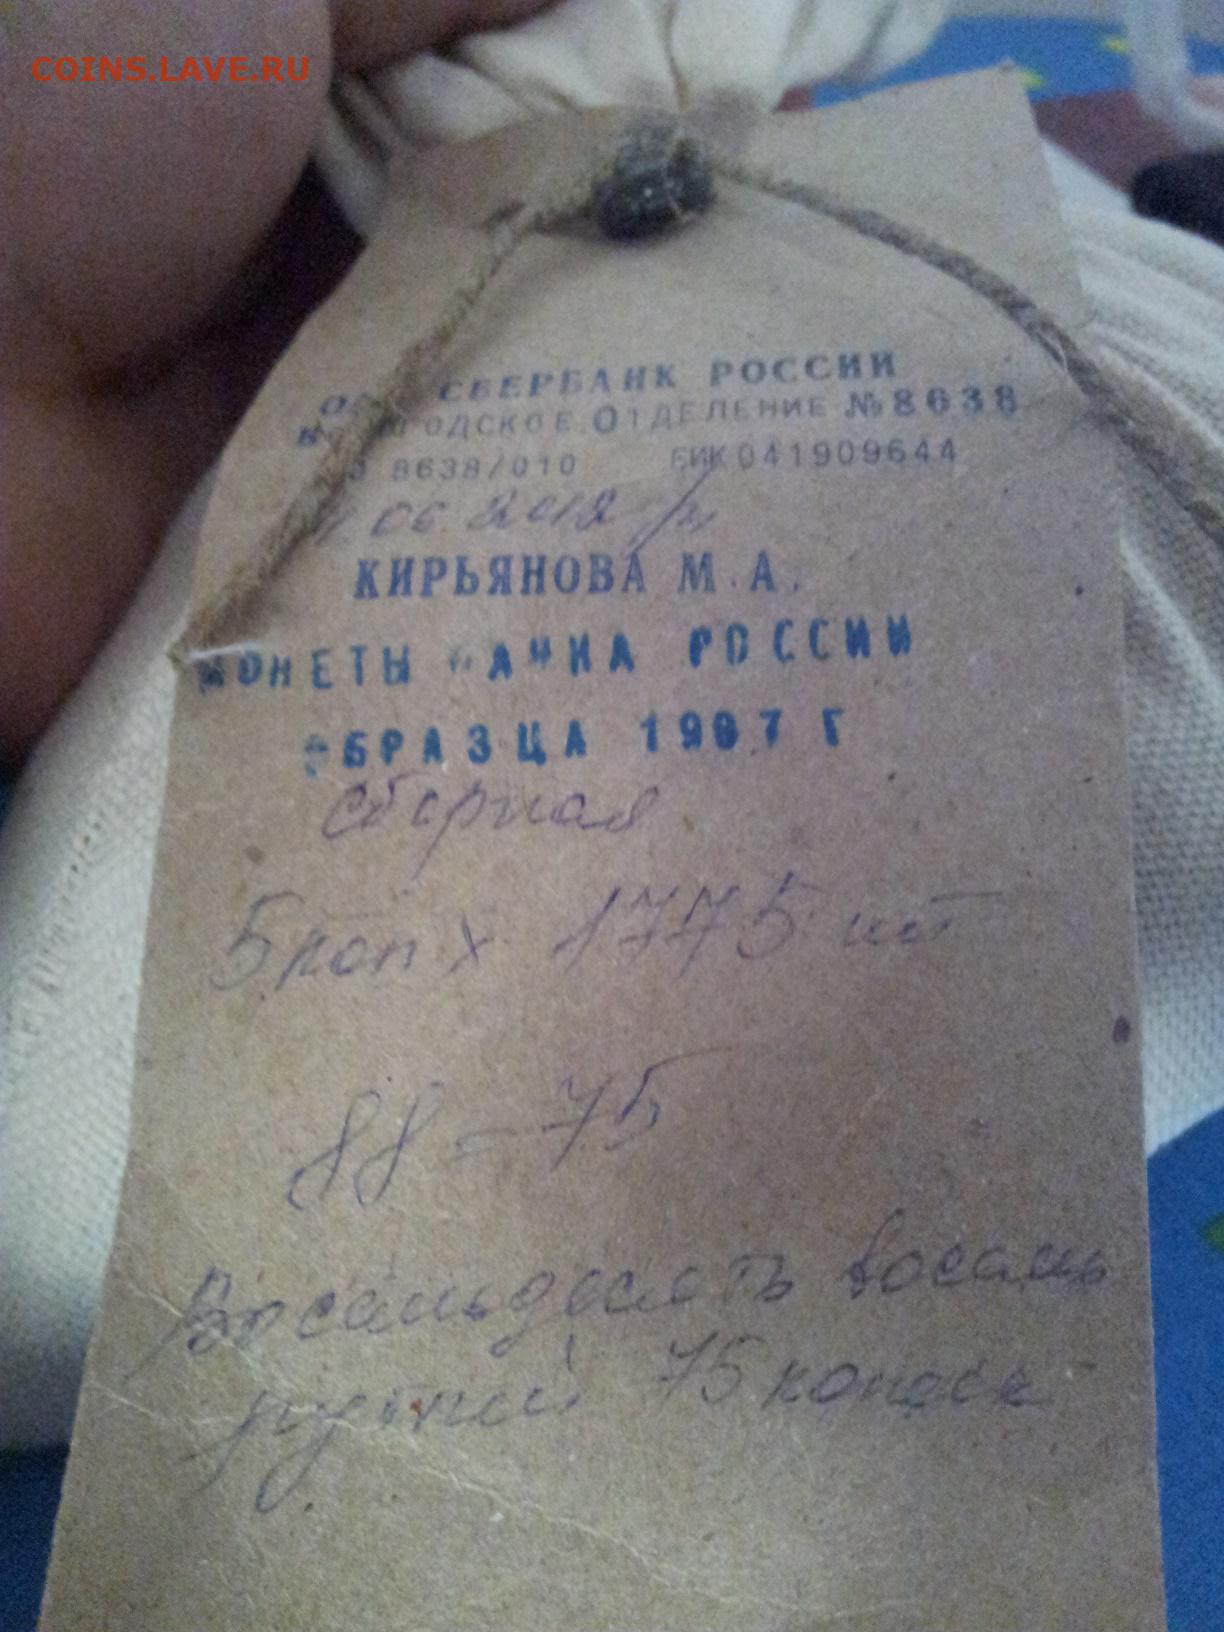 COINS.LAVE.RU
СБЕРБАНК РОССИИ
ОТДЕЛЕНИЕ №8638
8638/010 БИК 041909644
06 2012
КИРЬЯНОВА М.А.
МОНЕТЫ БАНКА РОССИИ
ОБРАЗЦА 1997 Г
сборная
5 коп х 1775 шт
88=75
Восемьдесят восемь
рублей 75 копеек